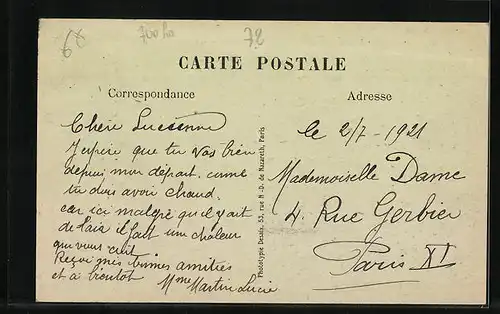 6x
700 Ro
78
CARTE POSTALE
Correspondance
Adresse
Chère Lucienne
J'espère que tu vas bien
depuis mon départ. comme
tu dois avoir chaud.
car ici malgré qu'il y ait
de l'air il fait une chaleur
qui vous cuit
Reçoi mes bonnes amitiés
et à bientôt Mme Martin Lucie
Phototypie Desaix, 53, rue N.-D. de Nazareth, Paris
le 2/7-1921
Mademoiselle Dame
4. Rue Gerbier
Paris XI